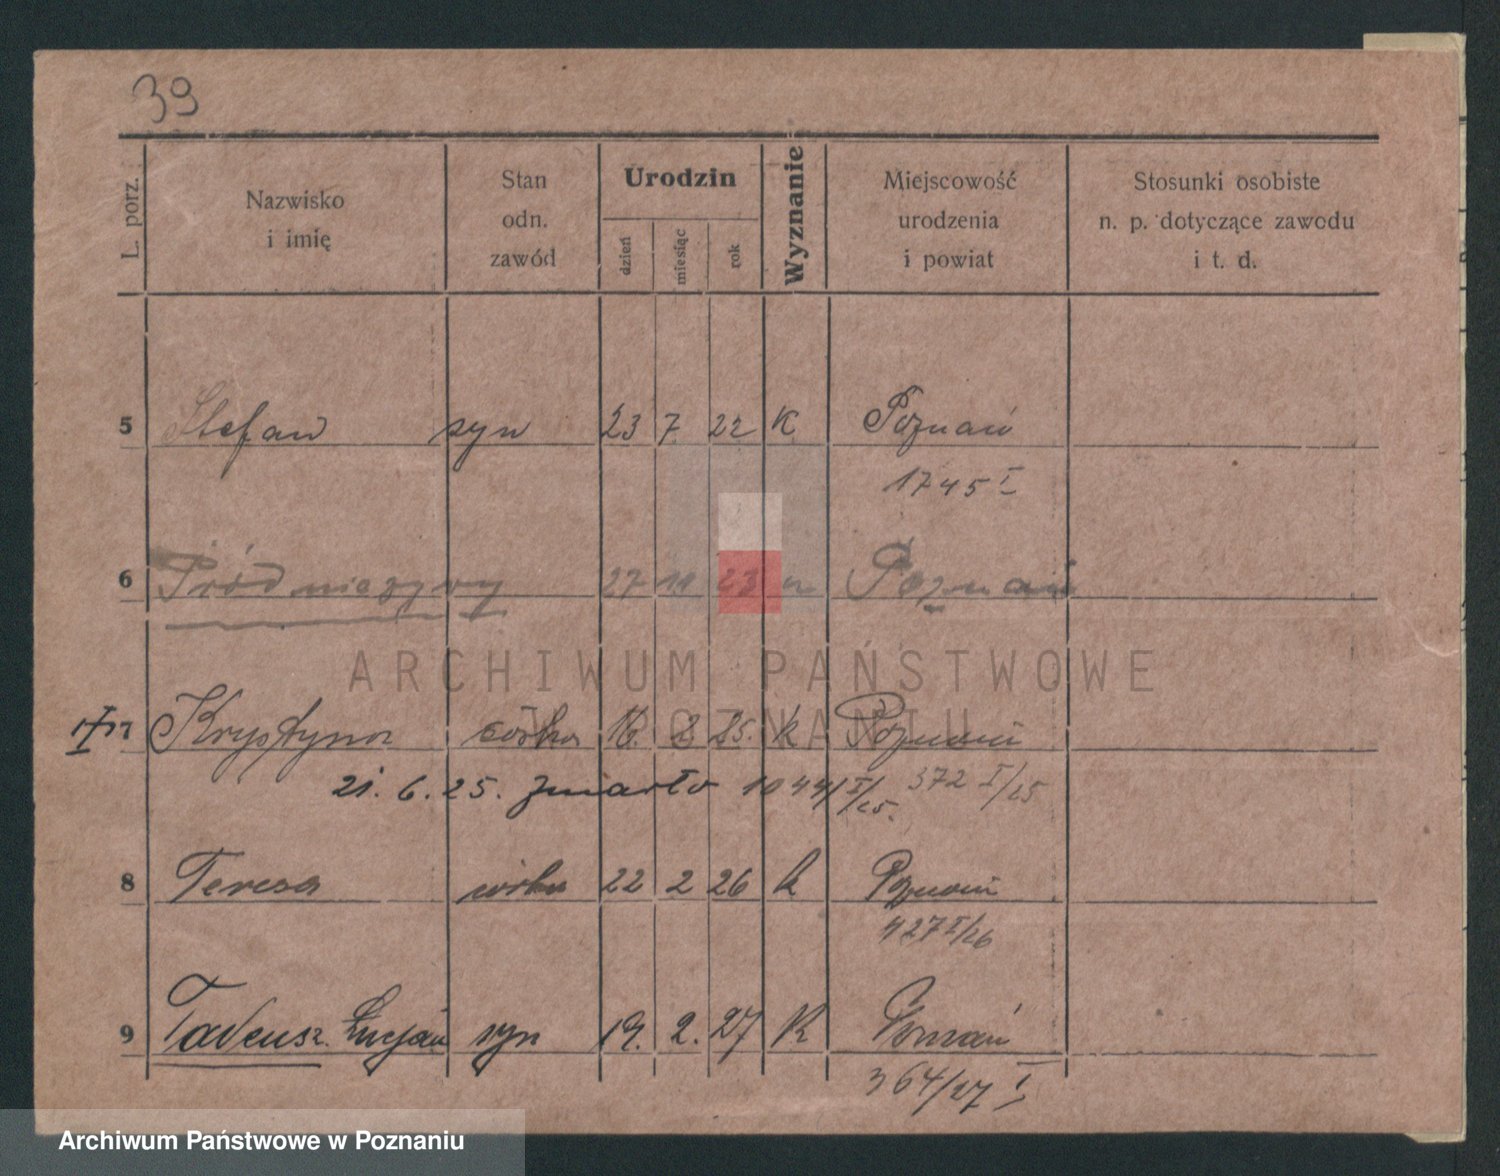 39
L. porz.
Nazwisko
i imię
Stan
odn.
zawód
Urodzin
dzień
miesiąc
rok
Wyznanie
Miejscowość
urodzenia
i powiat
Stosunki osobiste
n. p. dotyczące zawodu
i t. d.
5 Stefan syn 23 7 22 K Poznań
1745 I
6 27 23 Poznań
ARCHIWUM PAŃSTWOWE
W POZNANIU
7 Krystyna córka 16. 2 25. k Poznań
21. 6. 25. zmarło 1044 I/25. 372 I/25
8 Teresa córka 22 2 26 k Poznań
427 I/26
9 Tadeusz Lucjan syn 19. 2. 27 K Poznań
364/27 I
Archiwum Państwowe w Poznaniu